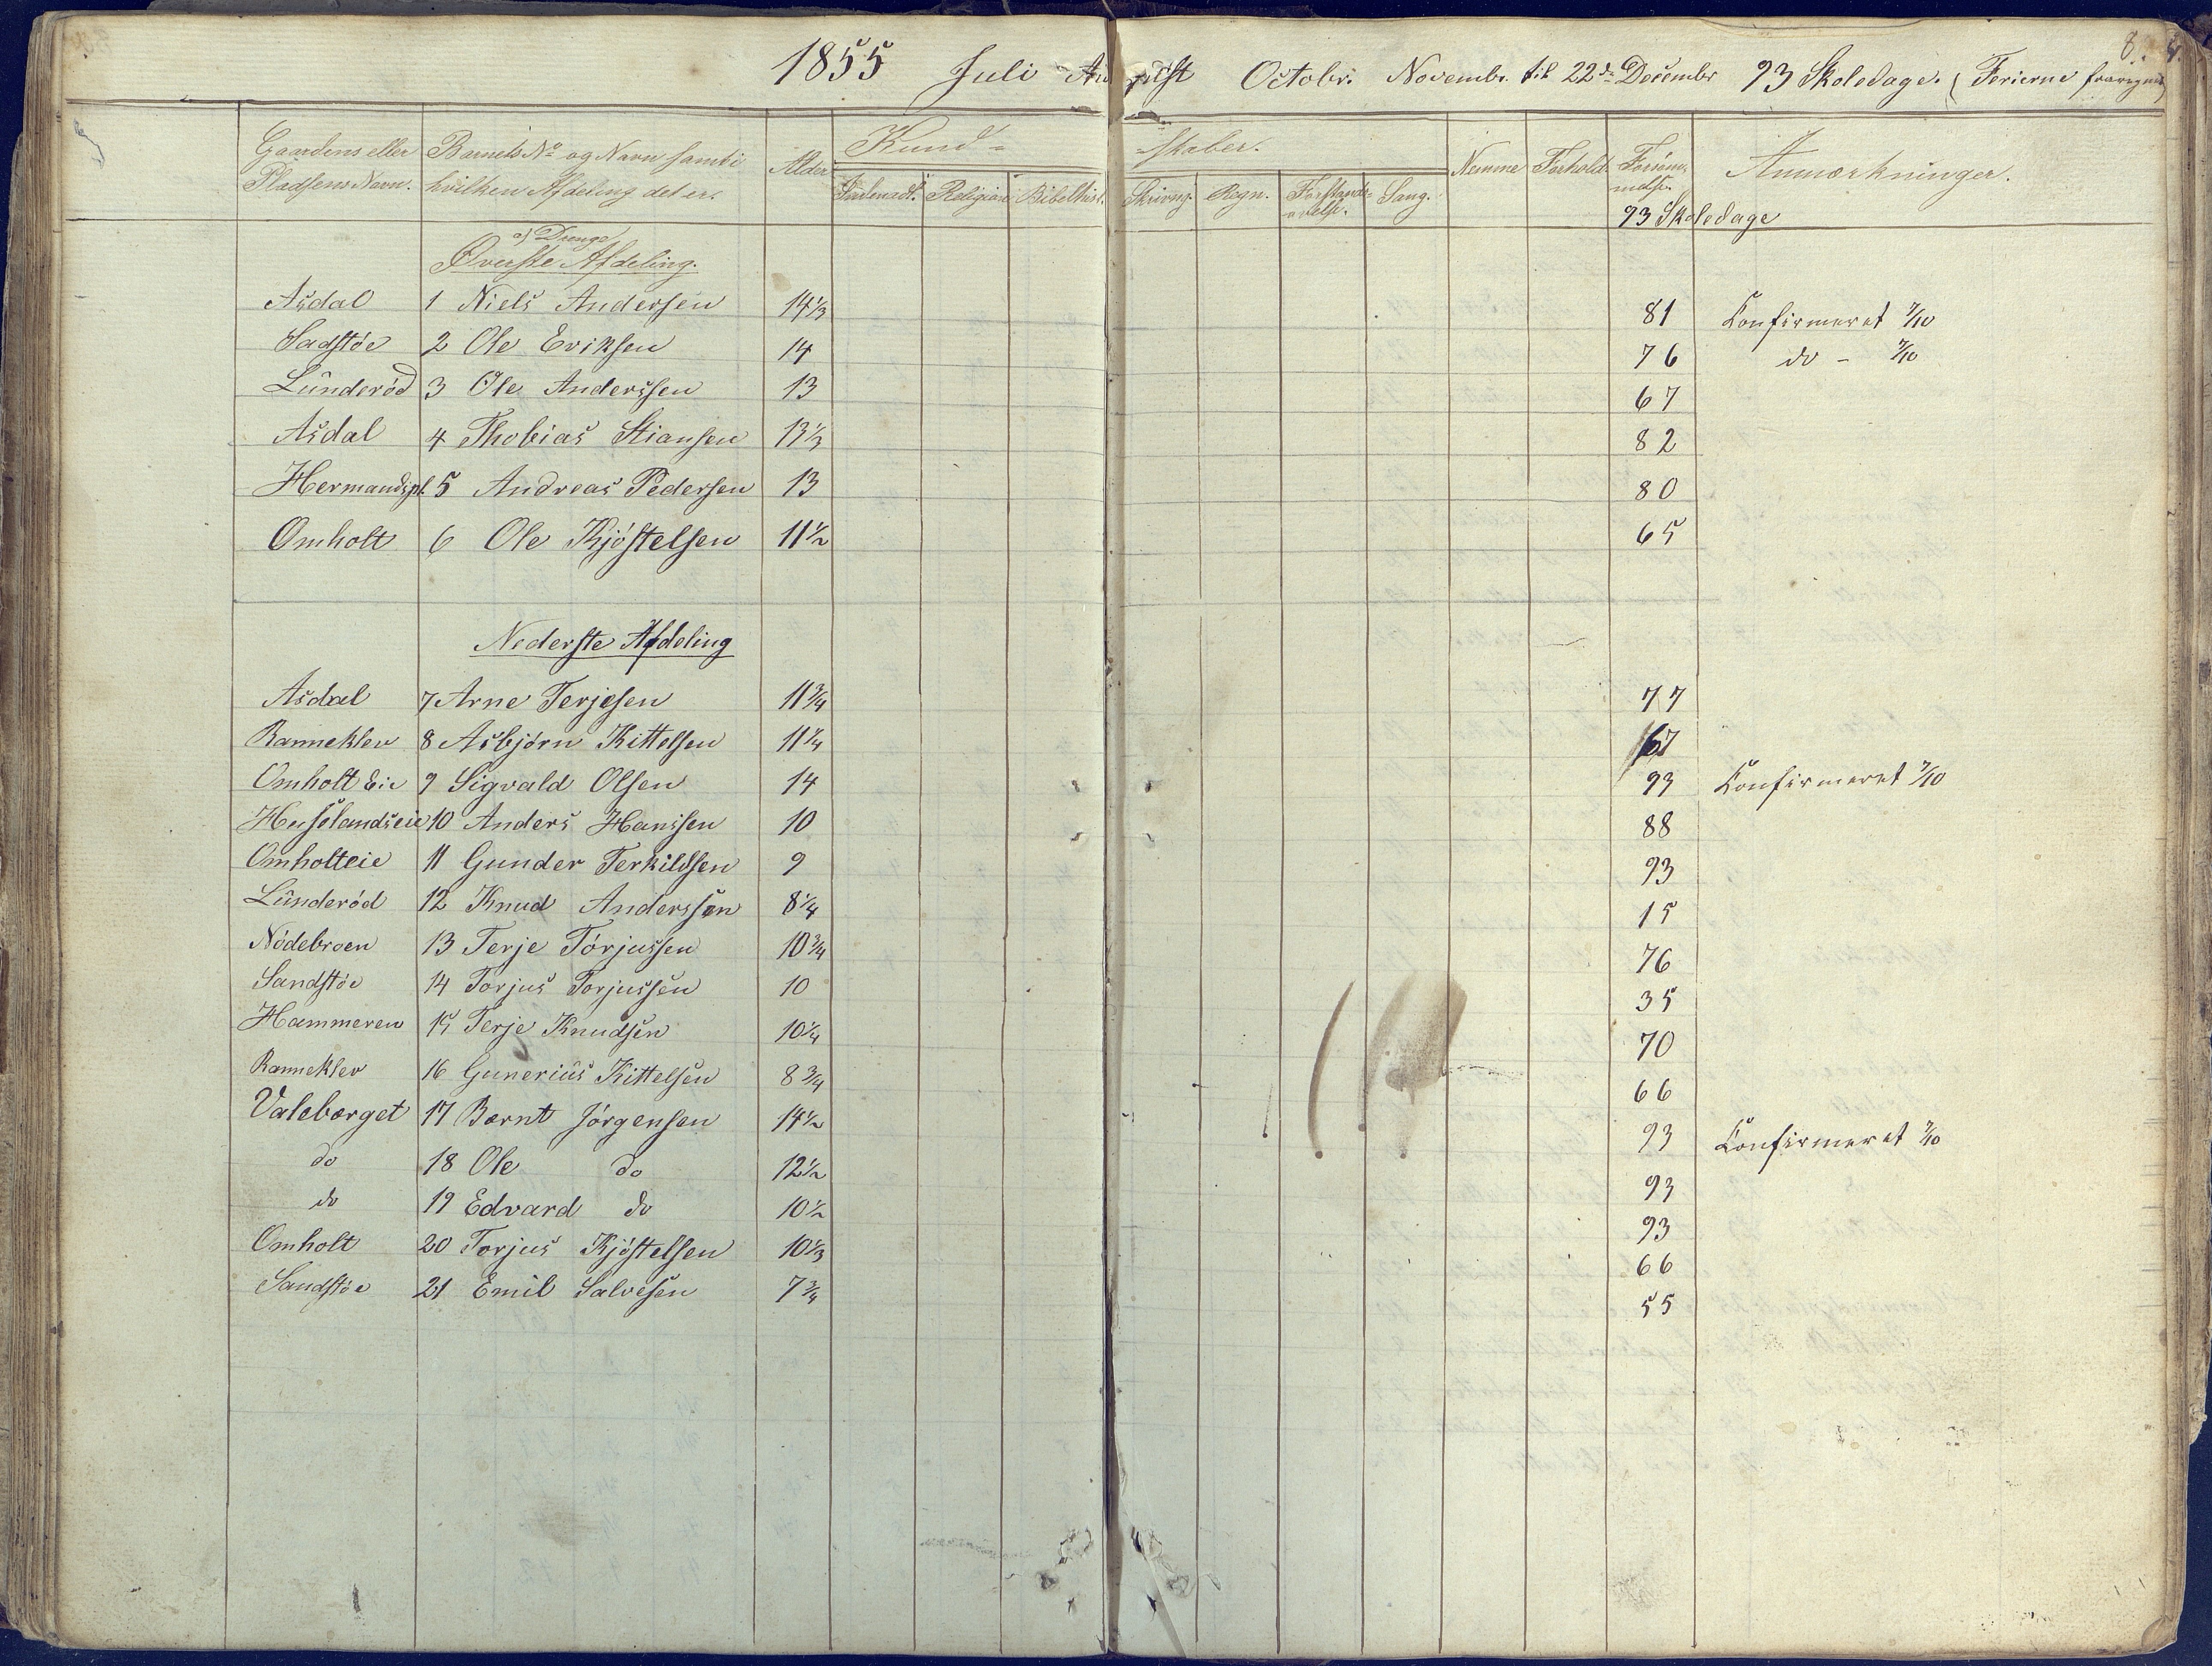 8.
1855 Juli August Octobr. Novembr. til 22de December 93 Skoledage. (Ferierne fraregnet)
Gaardens eller Pladsens Navn. Barnets No og Navn samt i hvilken Afdeling det er. Alder Kund-skaber. Nemme Forhold Forsømmelse Anmærkninger.
Indenadl. Religion Bibelhist. Skrivng. Regn. Forstands-øvelse. Sang.
93 Skoledage
a) Drenge
Øverste Afdeling.
Asdal 1 Niels Andersen 14 1/3 81 Confirmeret 7/10
Sadstøe 2 Ole Eriksen 14 76 do - 7/10
Lunderød 3 Ole Anderssen 13 67
Asdal 4 Thobias Stiansen 13 1/3 82
Hermandspl. 5 Andreas Pedersen 13 80
Omholt 6 Ole Kjøstelsen 11 1/2 65
Nederste Afdeling
Asdal 7 Arne Terjesen 11 3/4 77
Ranneklev 8 Asbjörn Kittelsen 11 1/4 67
Omholt Eie 9 Sigvald Olsen 14 93 Confirmeret 7/10
Huslandseie 10 Anders Hanssen 10 88
Omholteie 11 Gunder Terkildsen 9 93
Lunderød 12 Knud Anderssen 8 1/4 15
Nødebroen 13 Terje Tórjussen 10 3/4 76
Sandstøe 14 Torjus Torjussen 10 35
Hammeren 15 Terje Knudsen 10 1/4 70
Ranneklev 16 Gunerius Kittelsen 8 3/4 66
Valebærget 17 Bernt Jörgensen 14 1/2 93 Confirmeret 7/10
do 18 Ole do 12 1/2 93
do 19 Edvard do 10 1/2 93
Omholt 20 Torjus Kjøstelsen 10 1/3 66
Sandstøe 21 Emil Salvesen 7 3/4 55